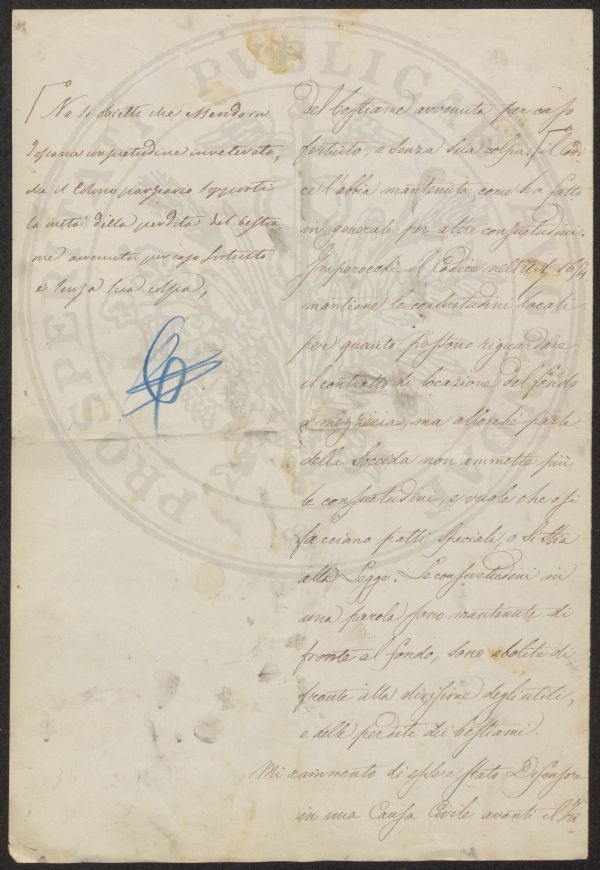 Ne si obietti che essendo in
Toscana consuetudine inveterata,
che il Colono parziario sopporti
la metà della perdita del bestia-
me avvenuta per caso fortuito
e senza sua colpa,
del bestiame avvenuta per caso
fortuito, e senza sua colpa, il Codi
ce l'abbia mantenuta, come ha fatto
in generale per altre consuetudini.
Imperocchè il Codice nell'Art. 1654
mantiene le consuetudini locali
per quanto possono riguardare
il contratto di locazione del fondo
a mezzeria, ma allorchè parla
della Soccida non ammette più
le consuetudini, e vuole che o si
facciano patti speciali, o si stia
alla Legge. Le consuetudini in
una parola sono mantenute di
fronte al fondo, sono abolite di
fronte alla divisione degli utili,
e delle perdite dei bestiami.
Mi rammento di essere stato Difensore
in una Causa Civile avanti il
PROSPERITATI PUBLICAE